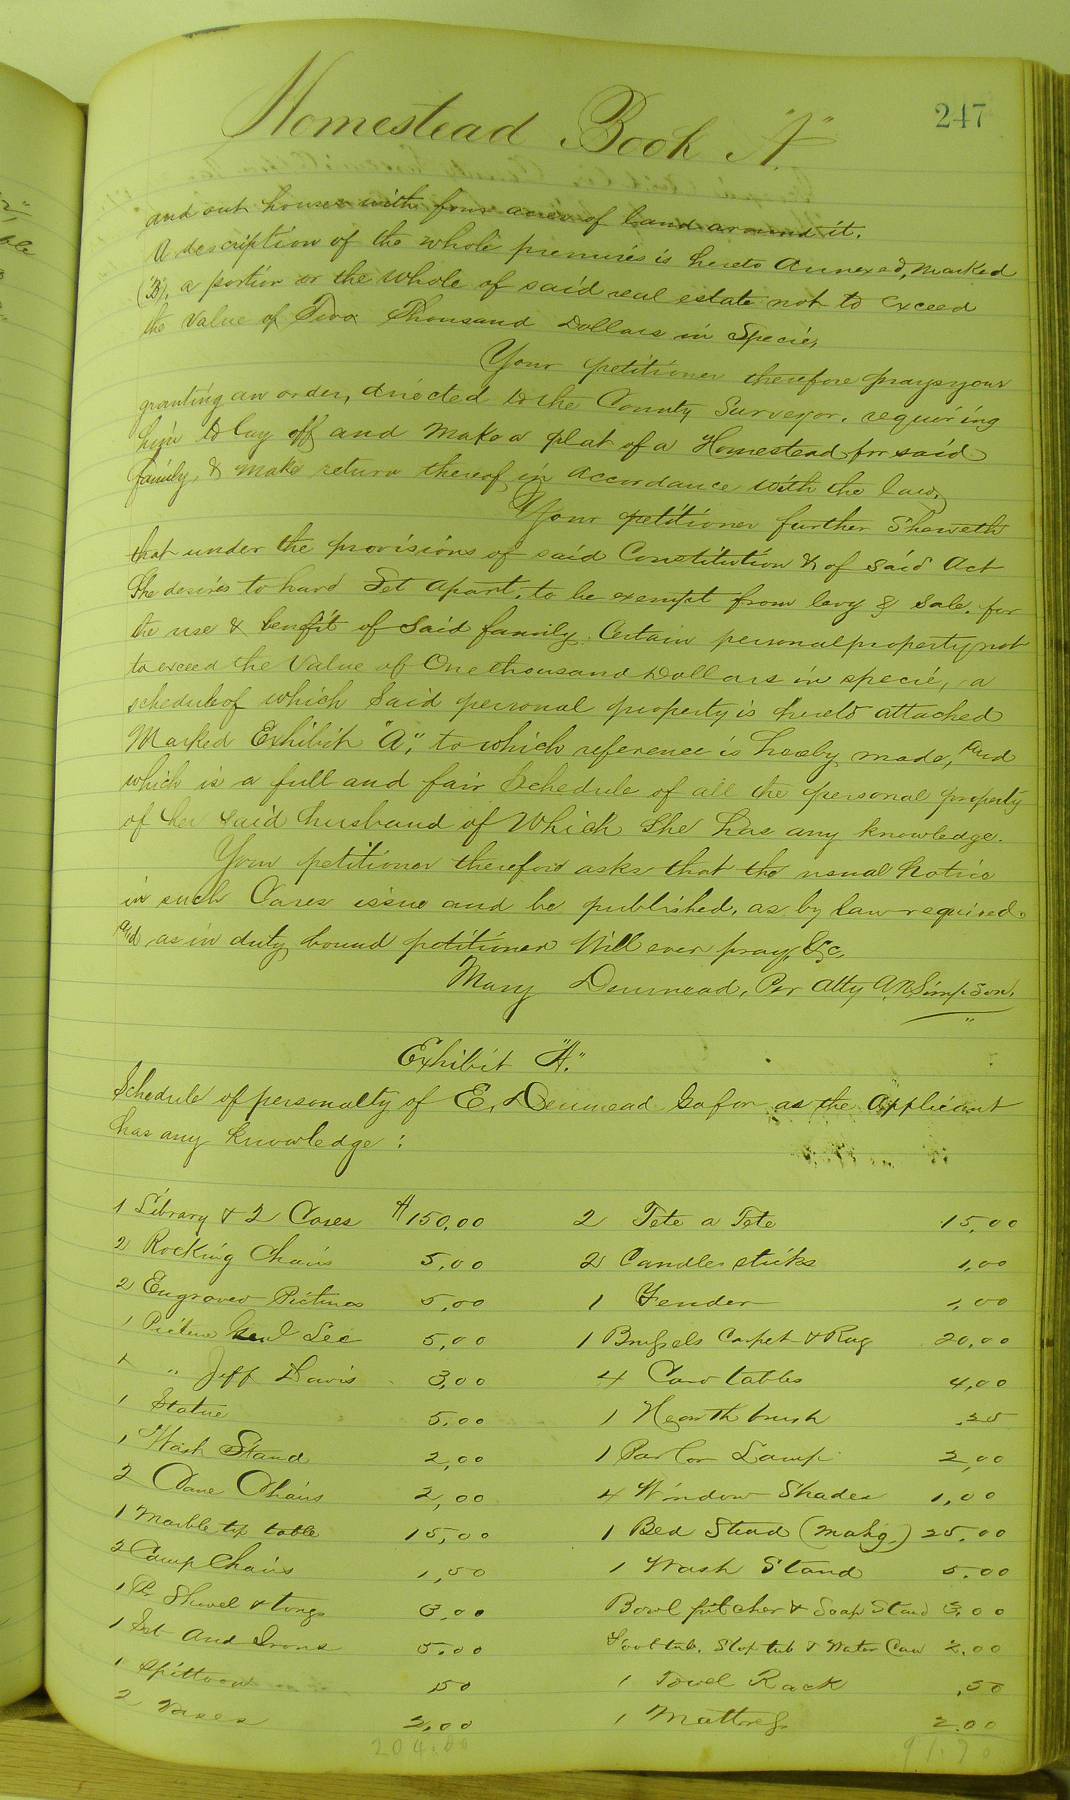 Homestead Book "A"
247
and out houses with four acres of land around it.
A description of the whole premises is hereto annexed, marked
("B"), a portion or the whole of said real estate not to exceed
the value of Two Thousand Dollars in Specie,
Your petitioner therefore prays your
granting an order, directed to the County Surveyor, requiring
him to lay off and make a plat of a Homestead for said
family, & make return thereof in accordance with the law,
Your petitioner further Sheweth
that under the provisions of said Constitution & of said Act
She desires to have Set apart, to be exempt from levy & sale, for
the use & benefit of said family Certain personal property not
to exceed the value of One thousand Dollars in specie, a
schedule of which said personal property is hereto attached
Marked Exhibit "A", to which reference is hereby made, and
which is a full and fair Schedule of all the personal property
of her said husband of which She has any knowledge.
Your petitioner therefore asks that the usual notice
in such Cases issue and be published, as by law required.
and as in duty bound petitioner Will ever pray, &c,
Mary Denmead, Per Atty A.N. Simpson.
Exhibit "A."
Schedule of personalty of E. Denmead so far as the applicant
has any knowledge:
1 Library & 2 Cases $150.00 2 Tete a Tete 15.00
2 Rocking Chairs 5.00 2 Candle sticks 1.00
2 Engraved Pictures 5.00 1 Fender 1.00
1 Picture Genl Lee 5.00 1 Brussels Carpet & Rug 20.00
1 " Jeff Davis 3.00 4 Card tables 4.00
1 Statue 5.00 1 Hearth brush .25
1 Wash Stand 2.00 1 Parlor Lamp 2.00
2 Cane Chairs 2.00 4 Window Shades 1.00
1 Marble top table 15.00 1 Bed Stead (Mahg.) 25.00
2 Camp Chairs 1.50 1 Wash Stand 5.00
1 Pr Shovel & tongs 3.00 Bowl pitcher & Soap Stand 3.00
1 Set And Irons 5.00 Foot tub, Slop tub & Water Can 2.00
1 Spittoon .50 1 Towel Rack .50
2 Vases 2.00 1 Mattress 2.00
204.00